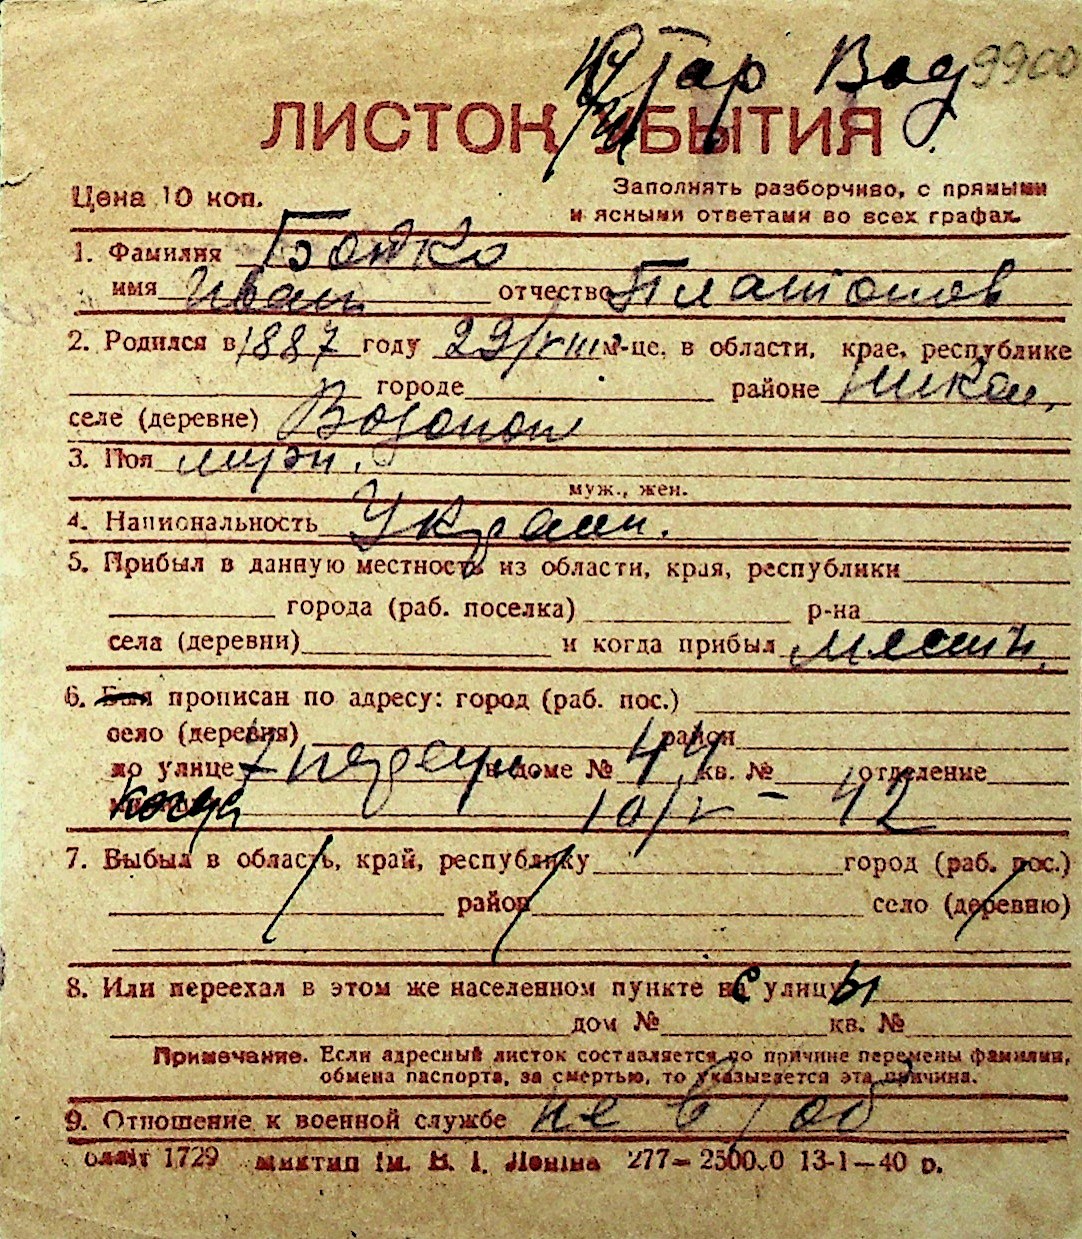 Стар Вод 9900
ЛИСТОК УБЫТИЯ
Цена 10 коп.
Заполнять разборчиво, с прямыми
и ясными ответами во всех графах.
1. Фамилия Бойко
имя Иван отчество Платонов
2. Родился в 1887 году 29/VIII м-це, в области, крае, республике
городе районе Никол.
селе (деревне) Водопой
3. Пол мужч.
муж., жен.
4. Национальность Украин.
5. Прибыл в данную местность из области, края, республики
города (раб. поселка) р-на
села (деревни) и когда прибыл местн.
6. Был прописан по адресу: город (раб. пос.)
село (деревня) район
по улице 7 в доме № 44 кв. № отделение
когда 10/V - 42
7. Выбыл в область, край, республику город (раб. пос.)
район село (деревню)
8. Или переехал в этом же населенном пункте с улицы
дом № кв. №
Примечание. Если адресный листок составляется по причине перемены фамилии,
обмена паспорта, за смертью, то указывается эта причина.
9. Отношение к военной службе не в/об
1729 ім. В. І. Леніна 277—2500.0 13-1—40 р.